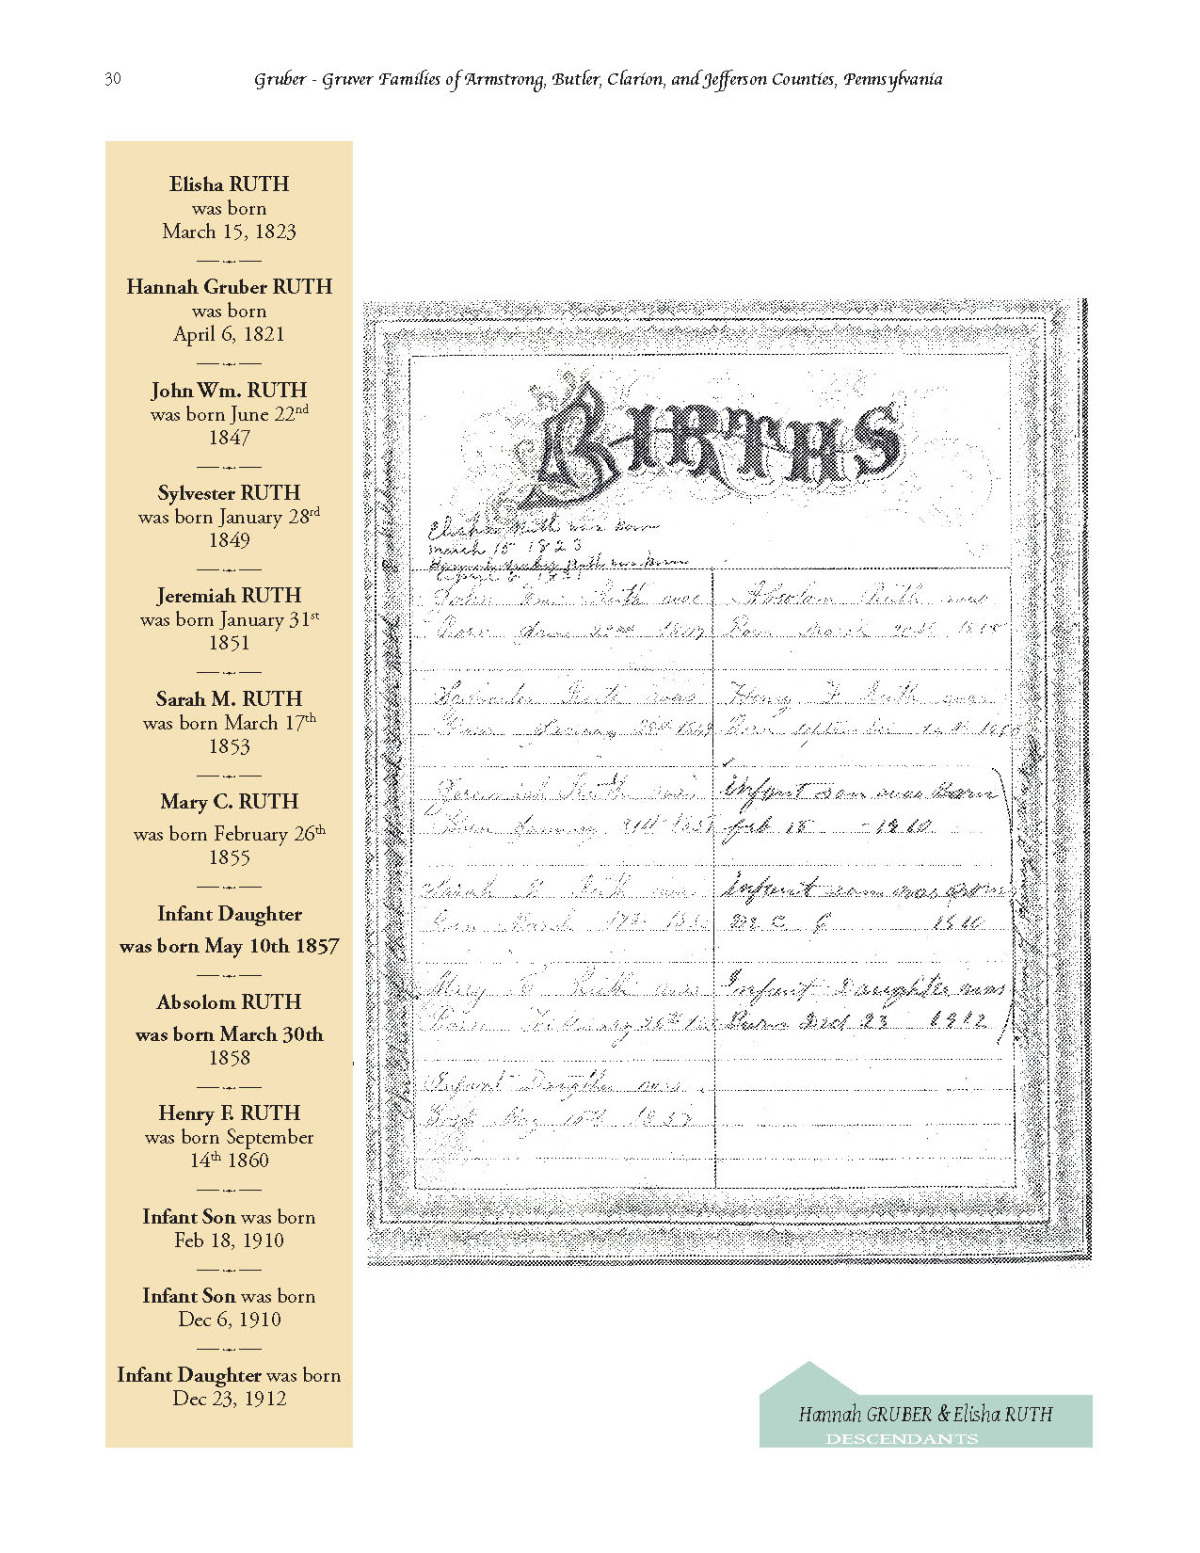 30
Gruber - Gruver Families of Armstrong, Butler, Clarion, and Jefferson Counties, Pennsylvania
Elisha RUTH
was born
March 15, 1823
Hannah Gruber RUTH
was born
April 6, 1821
John Wm. RUTH
was born June 22nd
1847
Sylvester RUTH
was born January 28rd
1849
Jeremiah RUTH
was born January 31st
1851
Sarah M. RUTH
was born March 17th
1853
Mary C. RUTH
was born February 26th
1855
Infant Daughter
was born May 10th 1857
Absolom RUTH
was born March 30th
1858
Henry F. RUTH
was born September
14th 1860
Infant Son was born
Feb 18, 1910
Infant Son was born
Dec 6, 1910
Infant Daughter was born
Dec 23, 1912
BIRTHS
Elisha Ruth was born
march 15 1823
Ruth was born
1821
John Ruth was
Born June 22nd 1847
Ruth was
28th 1849
Jeremiah Ruth was
Sarah Ruth was
March 17th
Mary Ruth was
Born February 26th
Infant Daughter was
May 10th 1857
Absolom Ruth was
Born March
Henry F Ruth was
Born
infant son was Born
feb 18 - 1910
infant son was Born
Dec 6 1910
Infant Daughter was
Born 23 1912
Hannah GRUBER & Elisha RUTH
DESCENDANTS